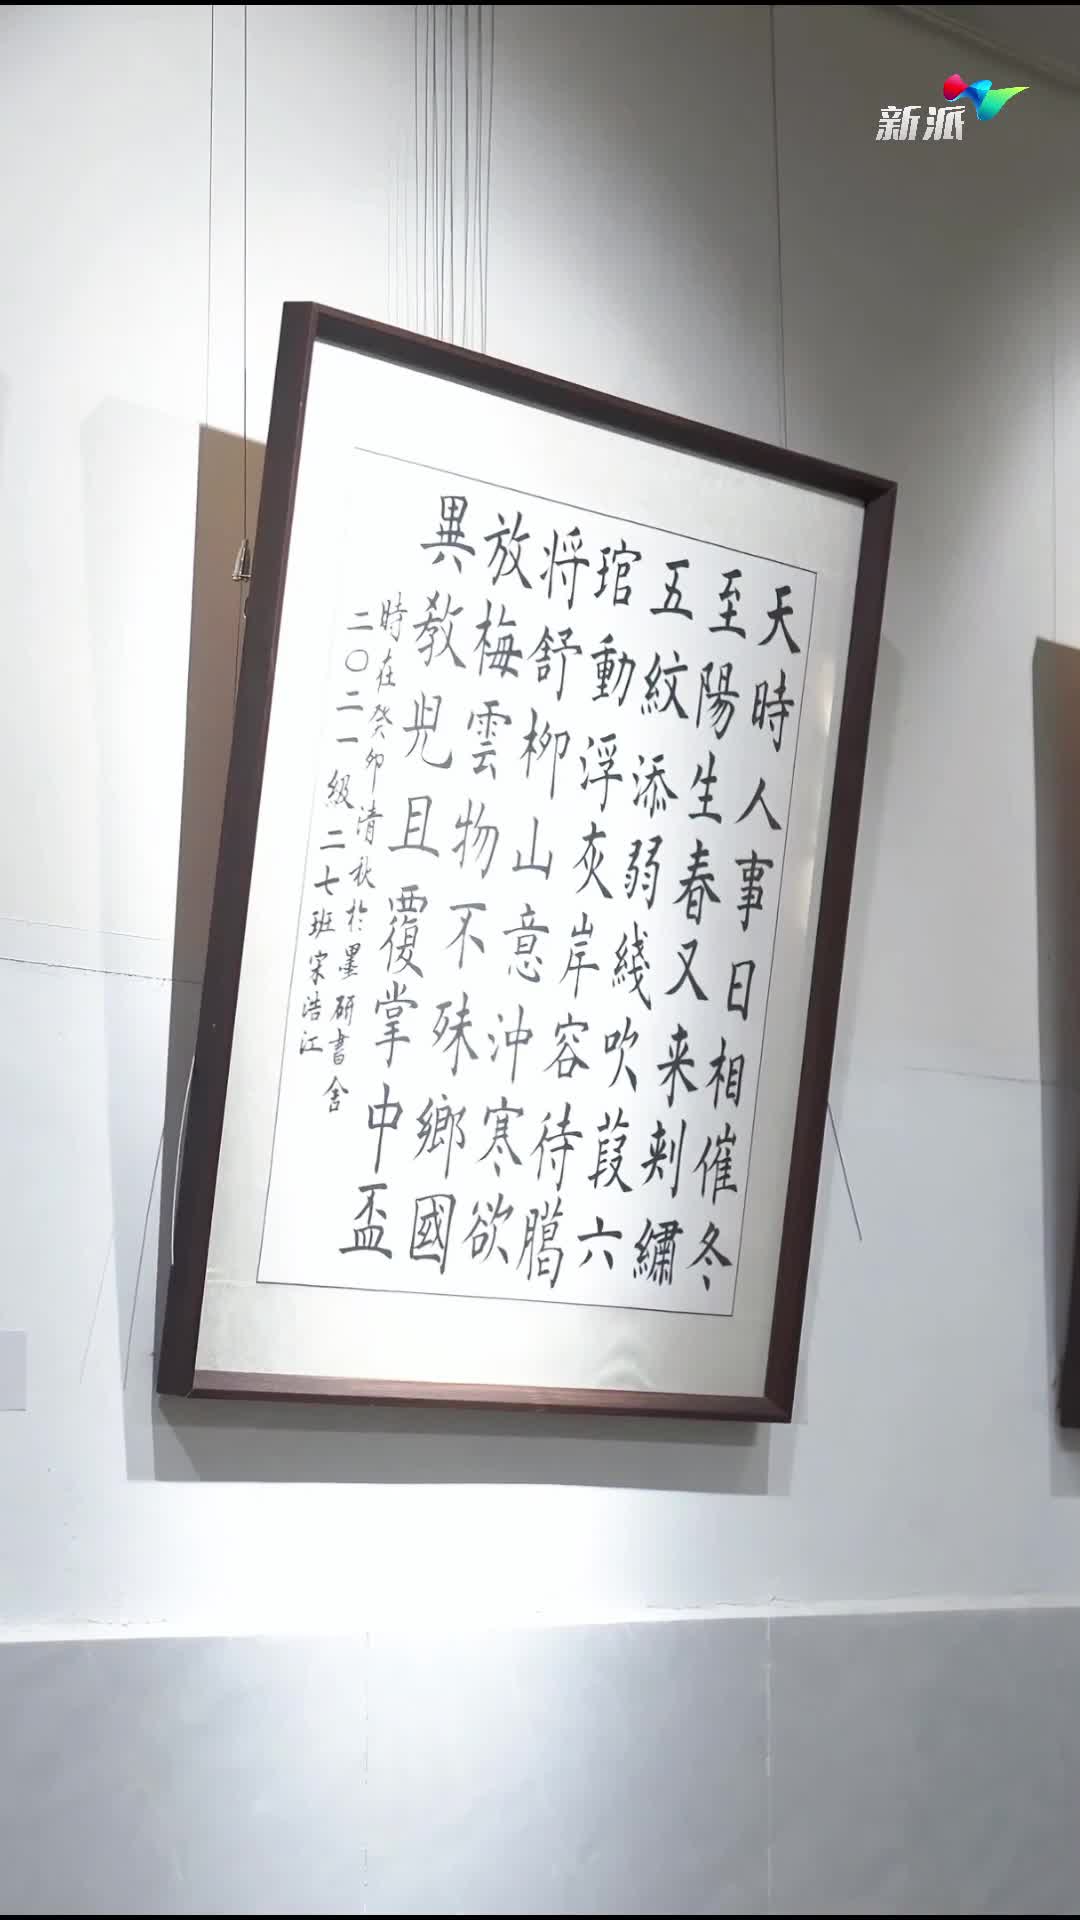 新派
天時人事日相催冬
至陽生春又来刺繡
五紋添弱綫吹葭六
琯動浮灰岸容待臈
将舒柳山意沖寒欲
放梅雲物不殊鄉國
異教兕且覆掌中盃
時在癸卯清秋於墨研書舍
二〇二一級二七班宋浩江